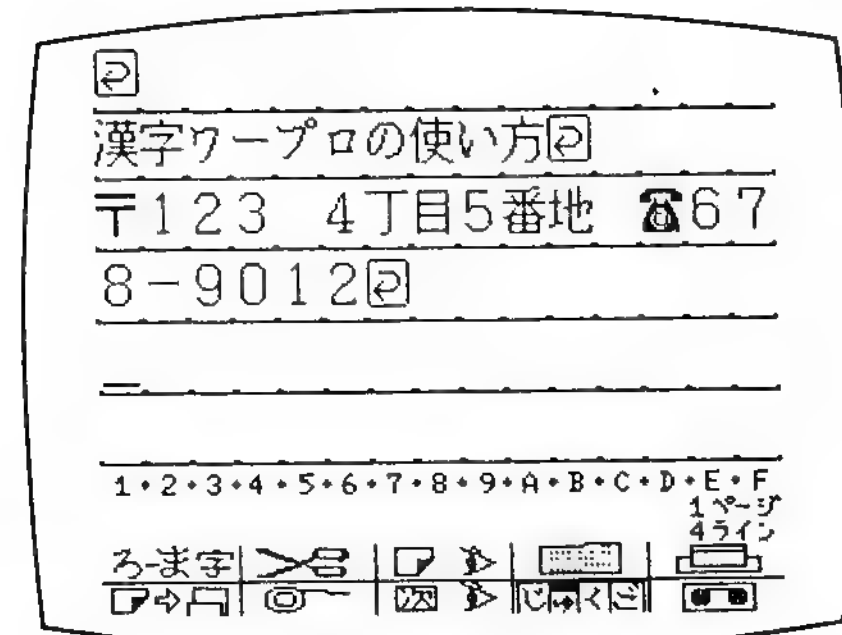 漢字ワープロの使い方
〒123 4丁目5番地 ☎67
8-9012
1・2・3・4・5・6・7・8・9・A・B・C・D・E・F
1ページ
4ライン
ろーま字
次 じゅくご